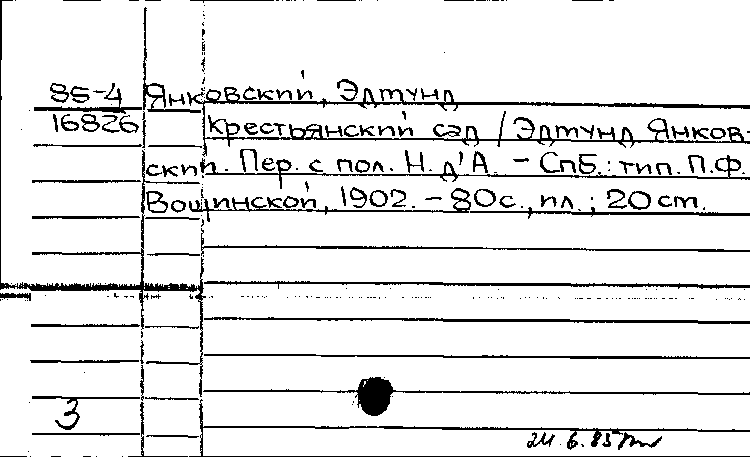 85-4 Янковский, Эдмунд
16826 Крестьянский сад / Эдмунд Янков-
ский. Пер. с пол. Н. д'А. - СПБ.: тип. П.Ф.
Вощинской, 1902. - 80 с., ил.; 20 см.
3
24.6.85